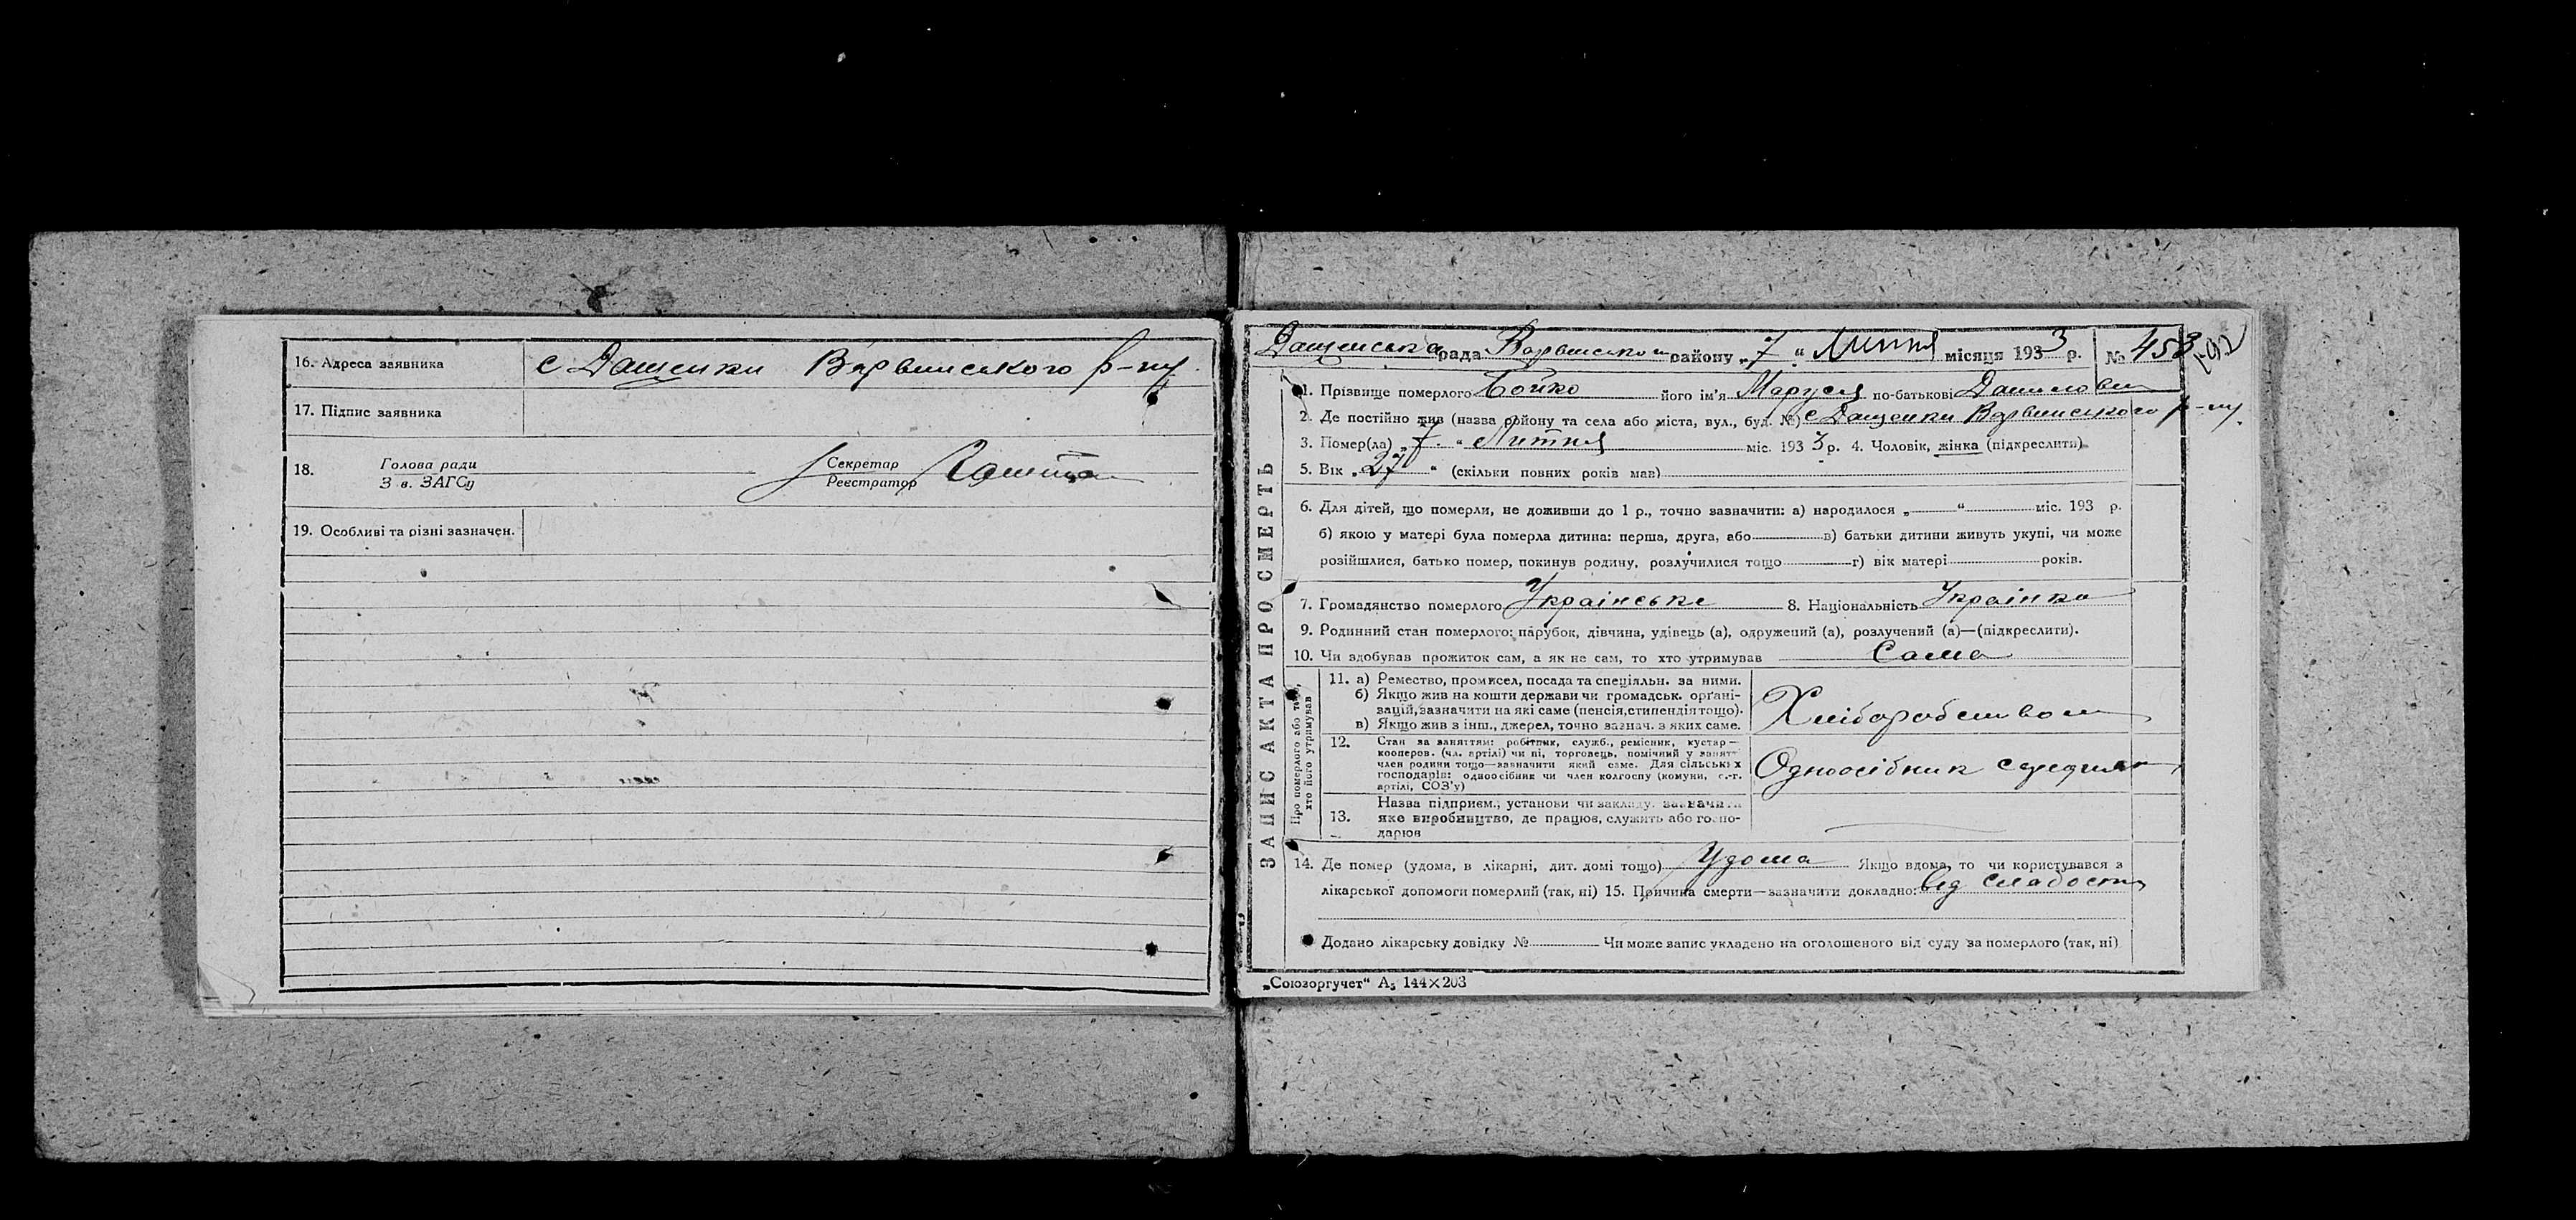 16. Адреса заявника с Дащенки Варвинського р-ну.
17. Підпис заявника
18. Голова ради
З в. ЗАГСу
Секретар
Реєстратор
19. Особливі та різні зазначен.
ЗАПИС АКТА ПРО СМЕРТЬ
Дащенська рада Варвинського району „7“ Липня місяця 1933 р. № 458
1. Прізвище померлого Бойко його ім'я Маруся по-батькові Данилова
2. Де постійно жив (назва району та села або міста, вул., буд. №) с Дащенки Варвинського р-ну.
3. Помер(ла) „7“ Липня міс. 1933 р. 4. Чоловік, жінка (підкреслити)
5. Вік „27“ (скільки повних років мав)
6. Для дітей, що померли, не доживши до 1 р., точно зазначити: а) народилося „ “ міс. 193 р.
б) якою у матері була померла дитина: перша, друга, або в) батьки дитини живуть укупі, чи може
розійшлися, батько помер, покинув родину, розлучилися тощо г) вік матері років.
7. Громадянство померлого Українське 8. Національність Українка
9. Родинний стан померлого: парубок, дівчина, удівець (а), одружений (а), розлучений (а)—(підкреслити).
10. Чи здобував прожиток сам, а як не сам, то хто утримував Сама
Про померлого або того,
хто його утримував
11. а) Ремество, промисел, посада та спеціяльн. за ними.
б) Якщо жив на кошти держави чи громадськ. органі-
зацій, зазначити на які саме (пенсія, стипендія тощо).
в) Якщо жив з інш., джерел, точно зазнач. з яких саме.
Хліборобством
12. Стан за заняттям: робітник, служб., ремісник, кустар—
кооперов. (чл. артілі) чи ні, торговець, помічний у занятт
член родини тощо—зазначити який саме. Для сільських
господарів: одноосібник чи член колгоспу (комуни, с.-г.
артілі, СОЗ'у)
Одноосібник середняк
13. Назва підприєм., установи чи закладу, зазначити
яке виробництво, де працює, служить або госпо-
дарює
14. Де помер (удома, в лікарні, дит. домі тощо) Удома Якщо вдома, то чи користувався з
лікарської допомоги померлий (так, ні) 15. Причина смерти—зазначити докладно: Від слабости
Додано лікарську довідку № Чи може запис укладено на оголошеного від суду за померлого (так, ні)
„Союзоргучет“ А5 144×203